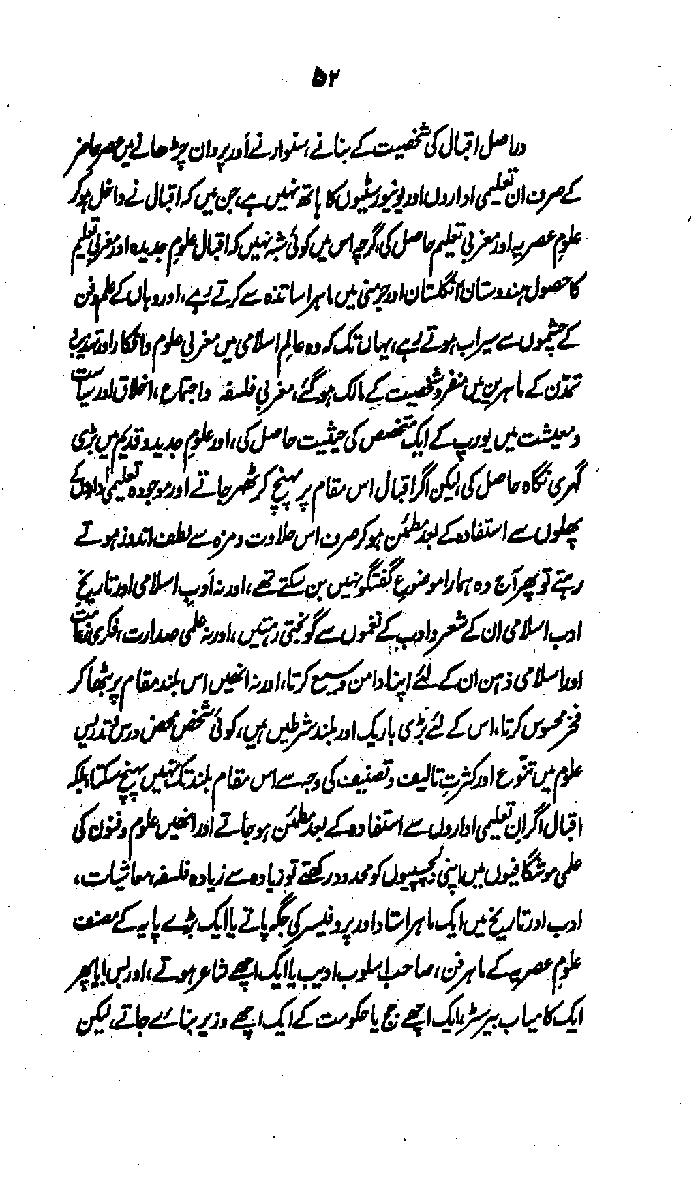 ۵۲
دراصل اقبال کی شخصیت کے بنانے، سنوارنے اور پروان چڑھانے میں عصر حاضر
کے صرف ان تعلیمی اداروں اور یونیورسٹیوں کا ہاتھ نہیں ہے، جن میں کہ اقبال نے داخل ہو کر
علوم عصریہ اور مغربی تعلیم حاصل کی، گرچہ اس میں کوئی شبہ نہیں کہ اقبال علومِ جدیدہ اور مغربی تعلیم
کا حصول ہندوستان، انگلستان اور جرمنی میں ماہر اساتذہ سے کرتے رہے، اور وہاں کے علم و فن
کے چشموں سے سیراب ہوتے رہے، یہاں تک کہ وہ عالم اسلامی میں مغربی علوم و افکار اور تہذیب
تمدّن کے ماہرین میں منفرد شخصیت کے مالک ہو گئے، مغربی فلسفہ و اجتماع، اخلاق اور سیاست
و معیشت میں یورپ کے ایک متخصص کی حیثیت حاصل کی، اور علوم جدید و قدیم میں بڑی
گہری نگاہ حاصل کی، لیکن اگر اقبال اس مقام پر پہنچ کر ٹھہر جاتے اور موجودہ تعلیمی اداروں کے
پھلوں سے استفادہ کے بعد مطمئن ہو کر صرف اس حلاوت و مزہ سے لطف اندوز ہوتے
رہتے تو پھر آج وہ ہمارا موضوعِ گفتگو نہیں بن سکتے تھے، اور نہ أدبِ اسلامی اور تاریخِ
ادب اسلامی ان کے شعر و ادب کے نغموں سے گونجتی رہتیں، اور نہ علمی صدارت، فکری زعامت
اور اسلامی ذہن ان کے لئے اپنا دامن وسیع کرتا، اور نہ انھیں اس بلند مقام پر بٹھا کر
فخر محسوس کرتا، اس کے لئے بڑی باریک اور بلند شرطیں ہیں، کوئی شخص محض درس و تدریس
علوم میں تنوّع اور کثرتِ تالیف و تصنیف کی وجہ سے اس مقام بلند تک نہیں پہنچ سکتا، بلکہ
اقبال اگر ان تعلیمی اداروں سے استفادہ کے بعد مطمئن ہو جاتے اور انھیں علوم و فنون کی
علمی موشگافیوں میں اپنی دلچسپیوں کو محدود رکھتے تو زیادہ سے زیادہ فلسفہ، معاشیات،
ادب اور تاریخ میں ایک ماہر استاد اور پروفیسر کی جگہ پاتے یا ایک بڑے پایہ کے مصنف
علوم عصریہ کے ماہر فن، صاحب اسلوب ادیب یا ایک اچھے شاعر ہوتے، اور بس! یا پھر
ایک کامیاب بیرسٹر، ایک اچھے جج یا حکومت کے ایک اچھے وزیر بنائے جاتے، لیکن